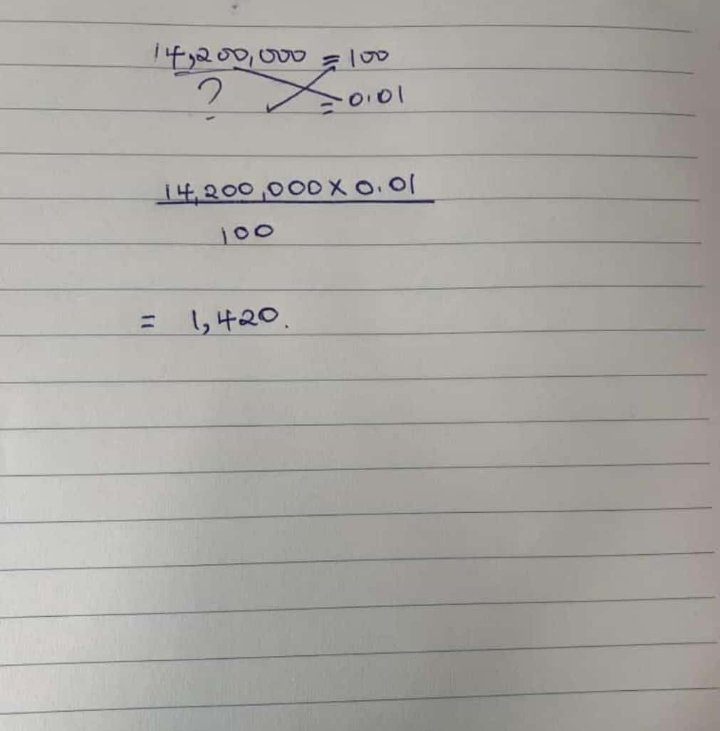 14,200,000 = 100
? = 0.01
14,200,000 X 0.01
100
= 1,420.